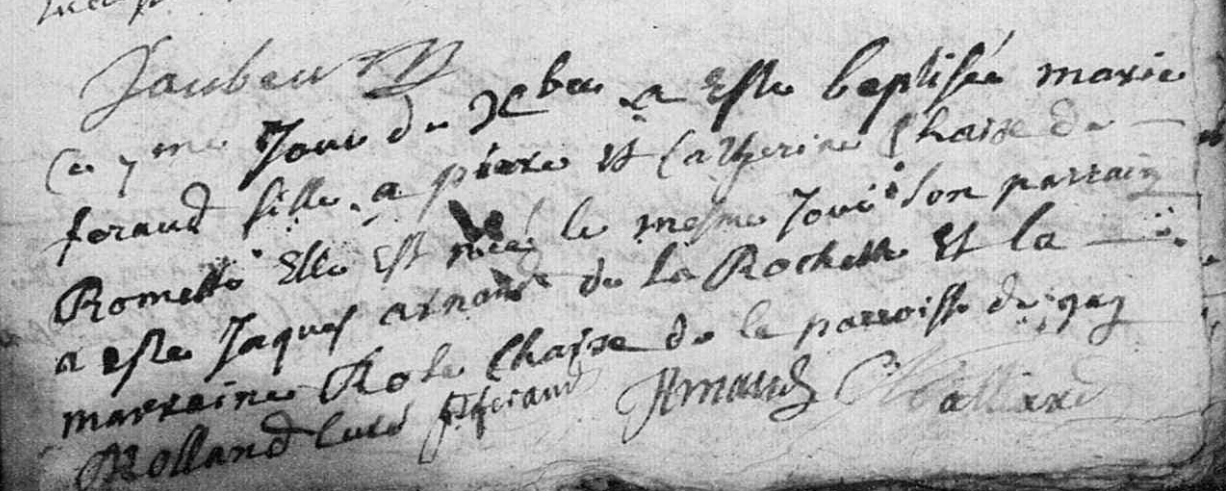 Jaubeu
Ce 7me Jour du Xbre a este baptisée marie
feraud fille a pierre et Catherine Chaise de
Romette Elle est née le mesme Jour son parrain
a este Jaques arnaud de la Rochette et la
marraine Chaise de la parroisse de gap
Rolland curé pferaud Arnaud Galliard